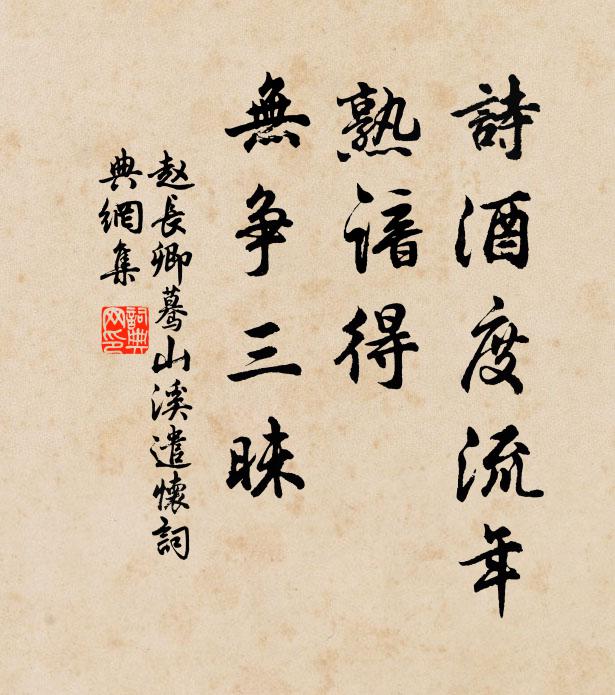 詩酒度流年
熟諳得
無争三昧
赵長卿驀山溪遣懷詞
典網集
詞典
网印